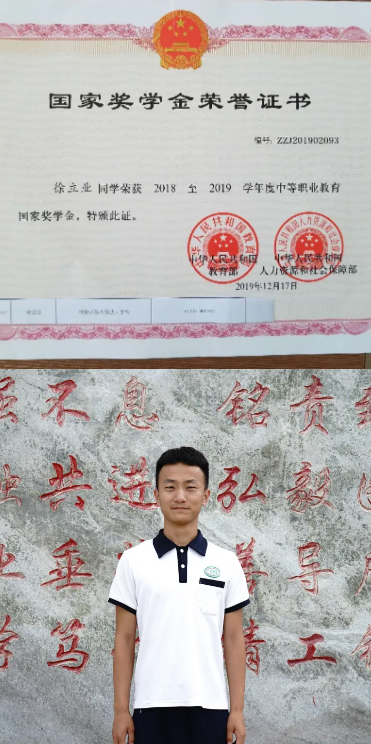 国家奖学金荣誉证书
编号: ZZJ201902093
徐立业 同学荣获 2018 至 2019 学年度中等职业教育
国家奖学金，特颁此证。
中华人民共和国 中华人民共和国
教育部 人力资源和社会保障部
2019年12月17日
强不息 铭责
共进 弘毅
业垂 善导
学笃 精工